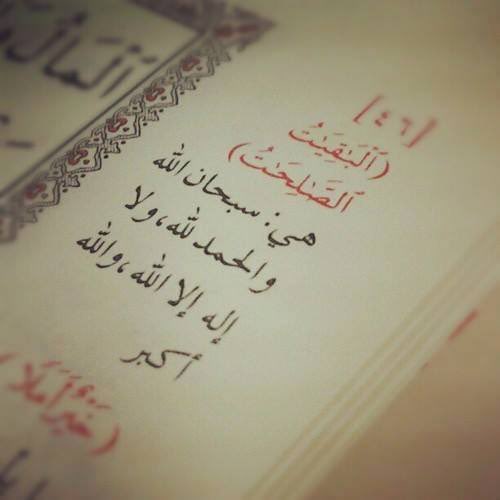 ٱلۡمَالُ
[٤٦]
(ٱلۡبَٰقِيَٰتُ
ٱلصَّٰلِحَٰتُ)
هي: سبحان الله
والحمد لله، ولا
إله إلا الله، والله
أكبر
(خَيۡرٌ أَمَلٗا)